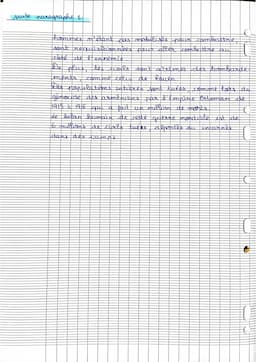 suite paragraphe 2
hommes n'étant pas mobilisés pour combattre,
sont réquisitionnées pour aller combattre au
côté de l'ennemie
De plus, les civils sont victimes des bombarde-
ments, comme celui de Rouen
Des populations entières sont tués comme lors du
génocide des arméniens par l'empire Ottoman de
1915 à 1916 qui a fait un million de morts.
Le bilan humain de cette guerre mondiale est de
6 millions de civils tués, déportés ou internés
dans des camps.